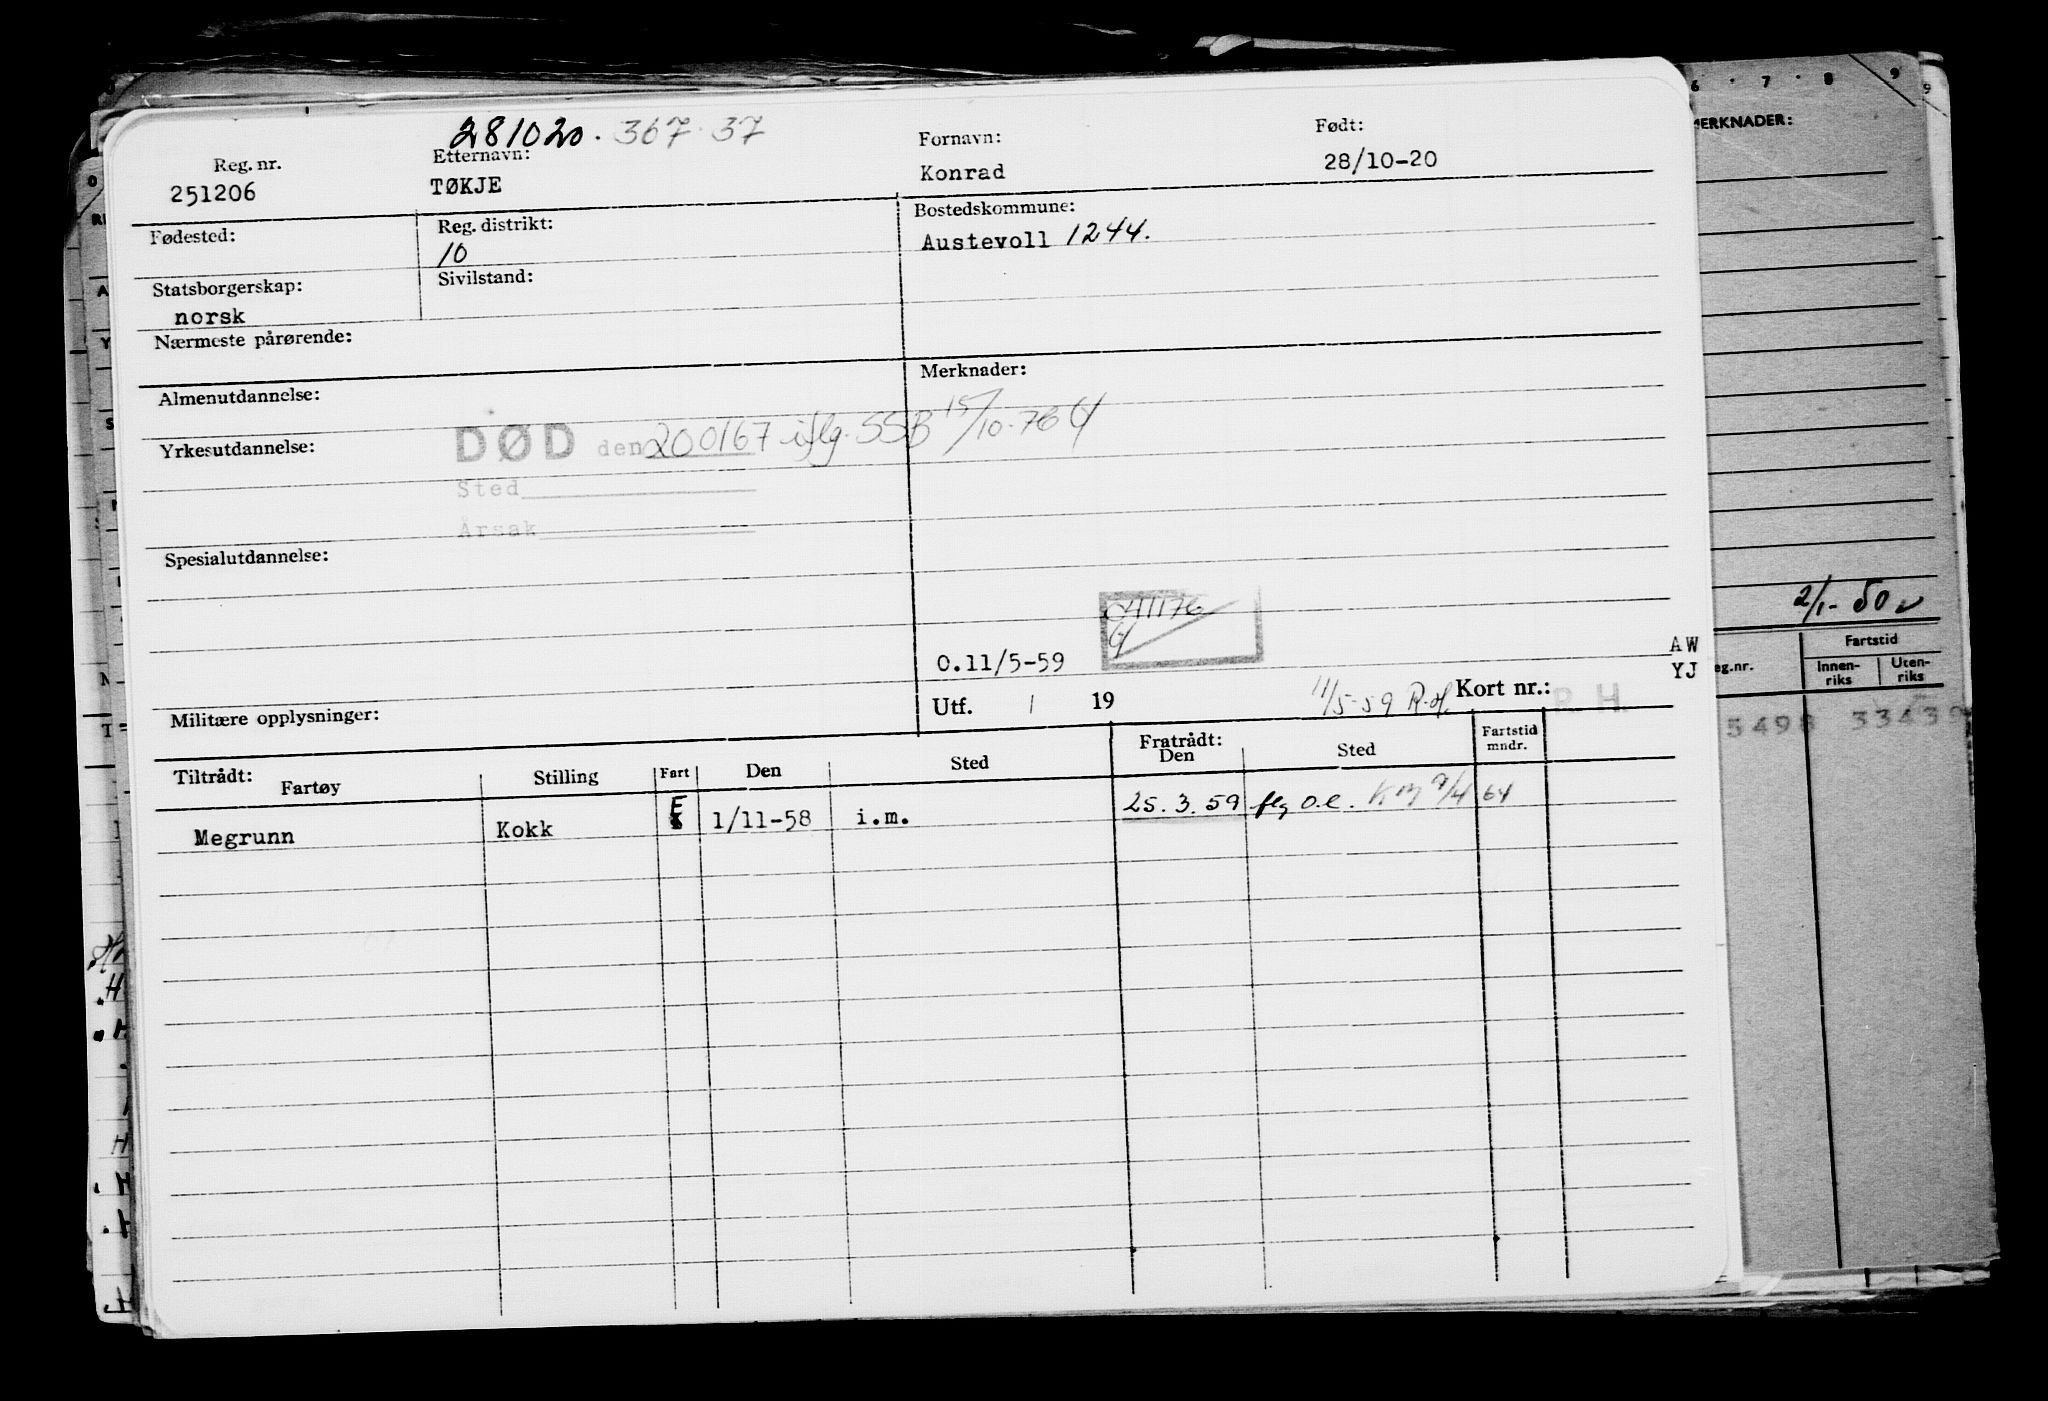 281020. 367 37
Reg. nr. Etternavn: Fornavn: Født:
251206 TØKJE Konrad 28/10-20
Fødested: Reg. distrikt: Bostedskommune:
10 Austevoll 1244.
Statsborgerskap: Sivilstand:
norsk
Nærmeste pårørende:
Almenutdannelse: Merknader:
Yrkesutdannelse: DØD den 200167 iflg. SSB 15/10-76
Sted
Årsak
Spesialutdannelse:
041176
O.11/5-59
AW
YJ
Militære opplysninger: Utf. / 19 11/5-59 Kort nr.: R.H.
Tiltrådt: Fartøy Stilling Fart Den Sted Fratrådt: Den Sted Fartstid mndr.
Megrunn Kokk E 1/11-58 i.m. 25.3.59 flg o.l. 9/4 64
6 7 8 9
MERKNADER:
2/1-50
eg.nr. Fartstid
Innen-
riks Uten-
riks
5498 33439